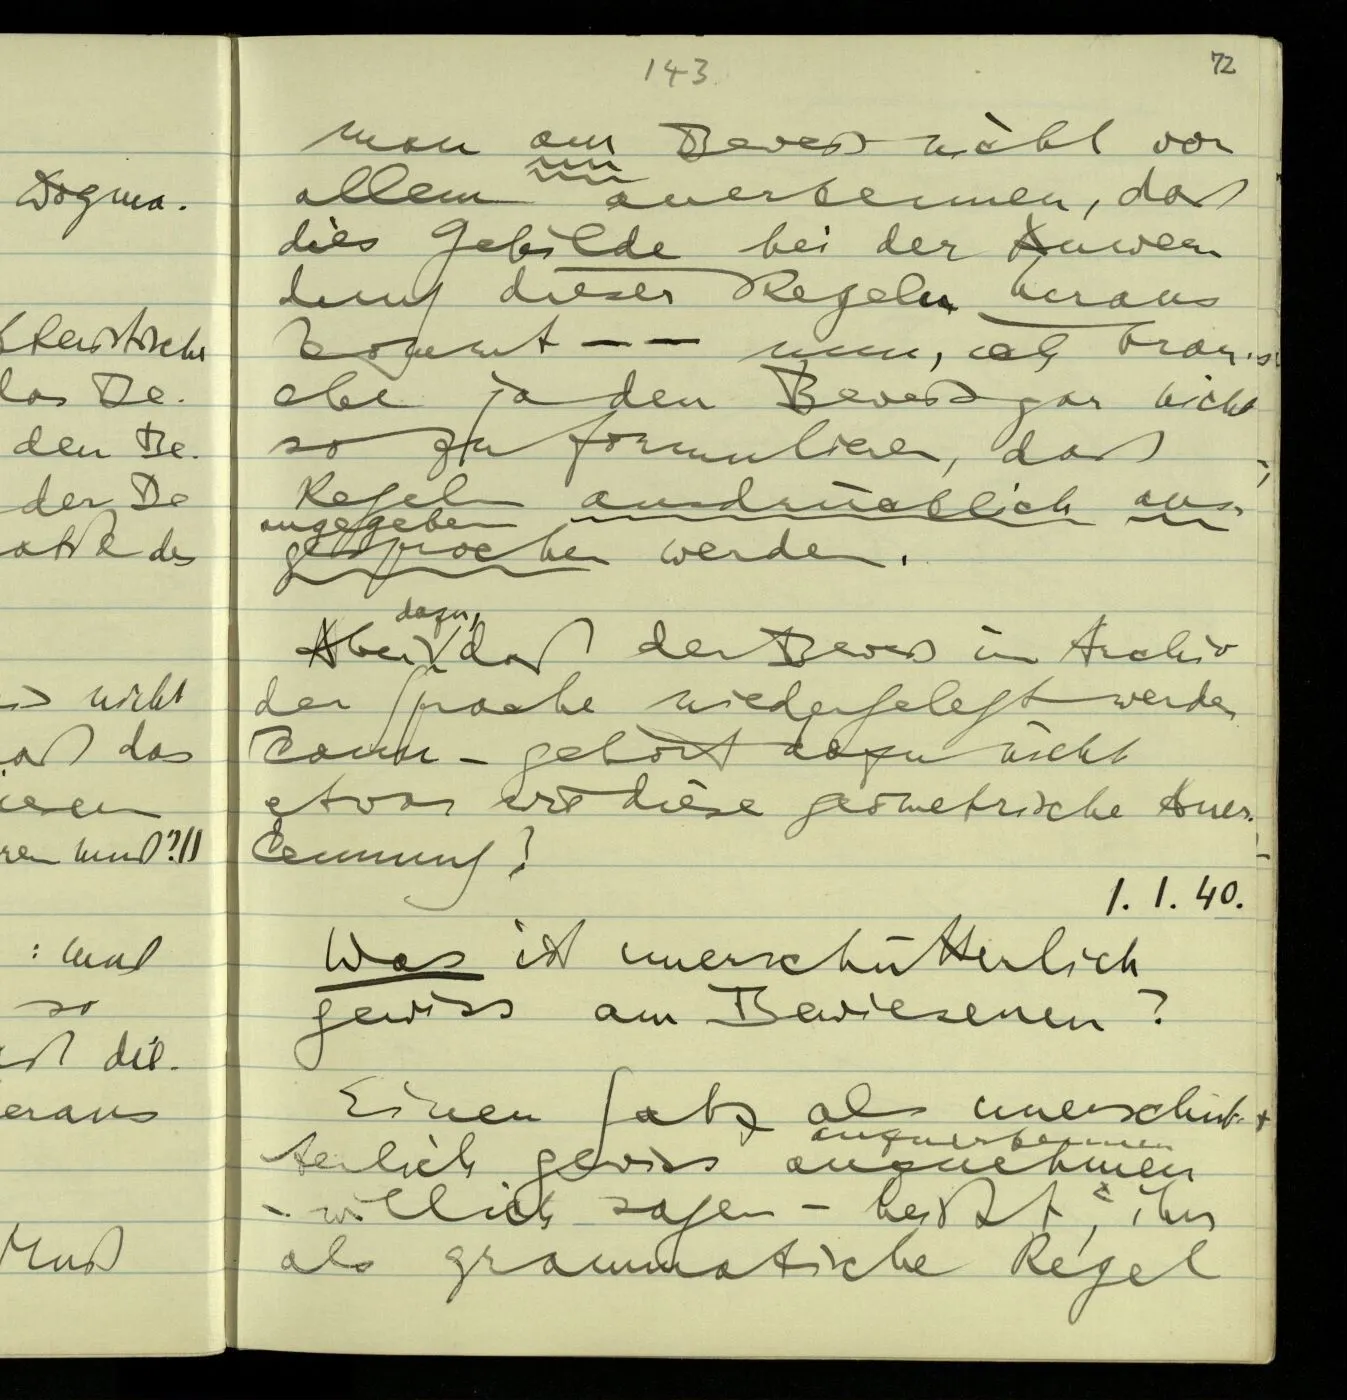 Dogma.
das Be.
den Be.
der Be
des
nicht
daß das
muß?//
: muß
so
die.
heraus
Muß
143
72
man am Beweis nicht vor
allem anerkennen, daß
dies Gebilde bei der Anwen
dung dieser Regeln heraus
kommt -- nun, ich brau-
che ja den Beweis gar nicht
so zu formulieren, daß
Regeln ausdrücklich aus-
angegeben
gesprochen werden.
dazu,
Aber daß der Beweis im Archiv
der Sprache niedergelegt werden
kann - gehört dazu nicht
etwas wie diese geometrische Aner-
kennung?
1. 1. 40.
Was ist unerschütterlich
gewiss am Bewiesenen?
Einen Satz als unerschüt-
anzuerkennen
terlich gewiss anzunehmen
- will ich sagen - heißt, ihn
als grammatische Regel